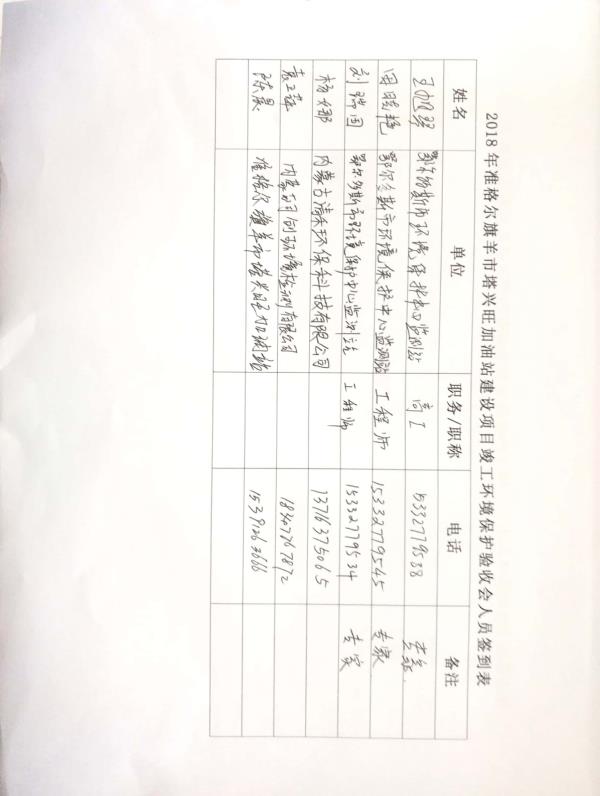 2018年准格尔旗羊市塔兴旺加油站建设项目竣工环境保护验收会人员签到表
姓名 单位 职务/职称 电话 备注
鄂尔多斯市环境保护中心监测站 高工 15332779538 专家
田晓艳 鄂尔多斯市环境保护中心监测站 工程师 15332779545 专家
刘瑞国 鄂尔多斯市环境保护中心监测站 工程师 15332779534 专家
杨娜 内蒙古清禾环保科技有限公司 13716375065
内蒙古 环境检测有限公司 18347767872
陈晨 准格尔旗羊市塔兴旺加油站 15391263666